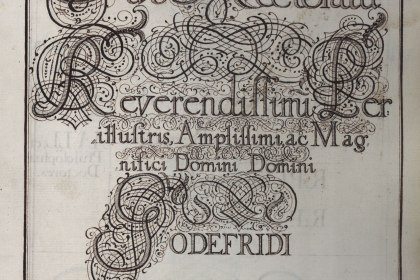 Rectoratu
Reverendiſſimi, Per
illuſtris, Ampliſſimi, ac Mag-
nifici Domini Domini
GODEFRIDI